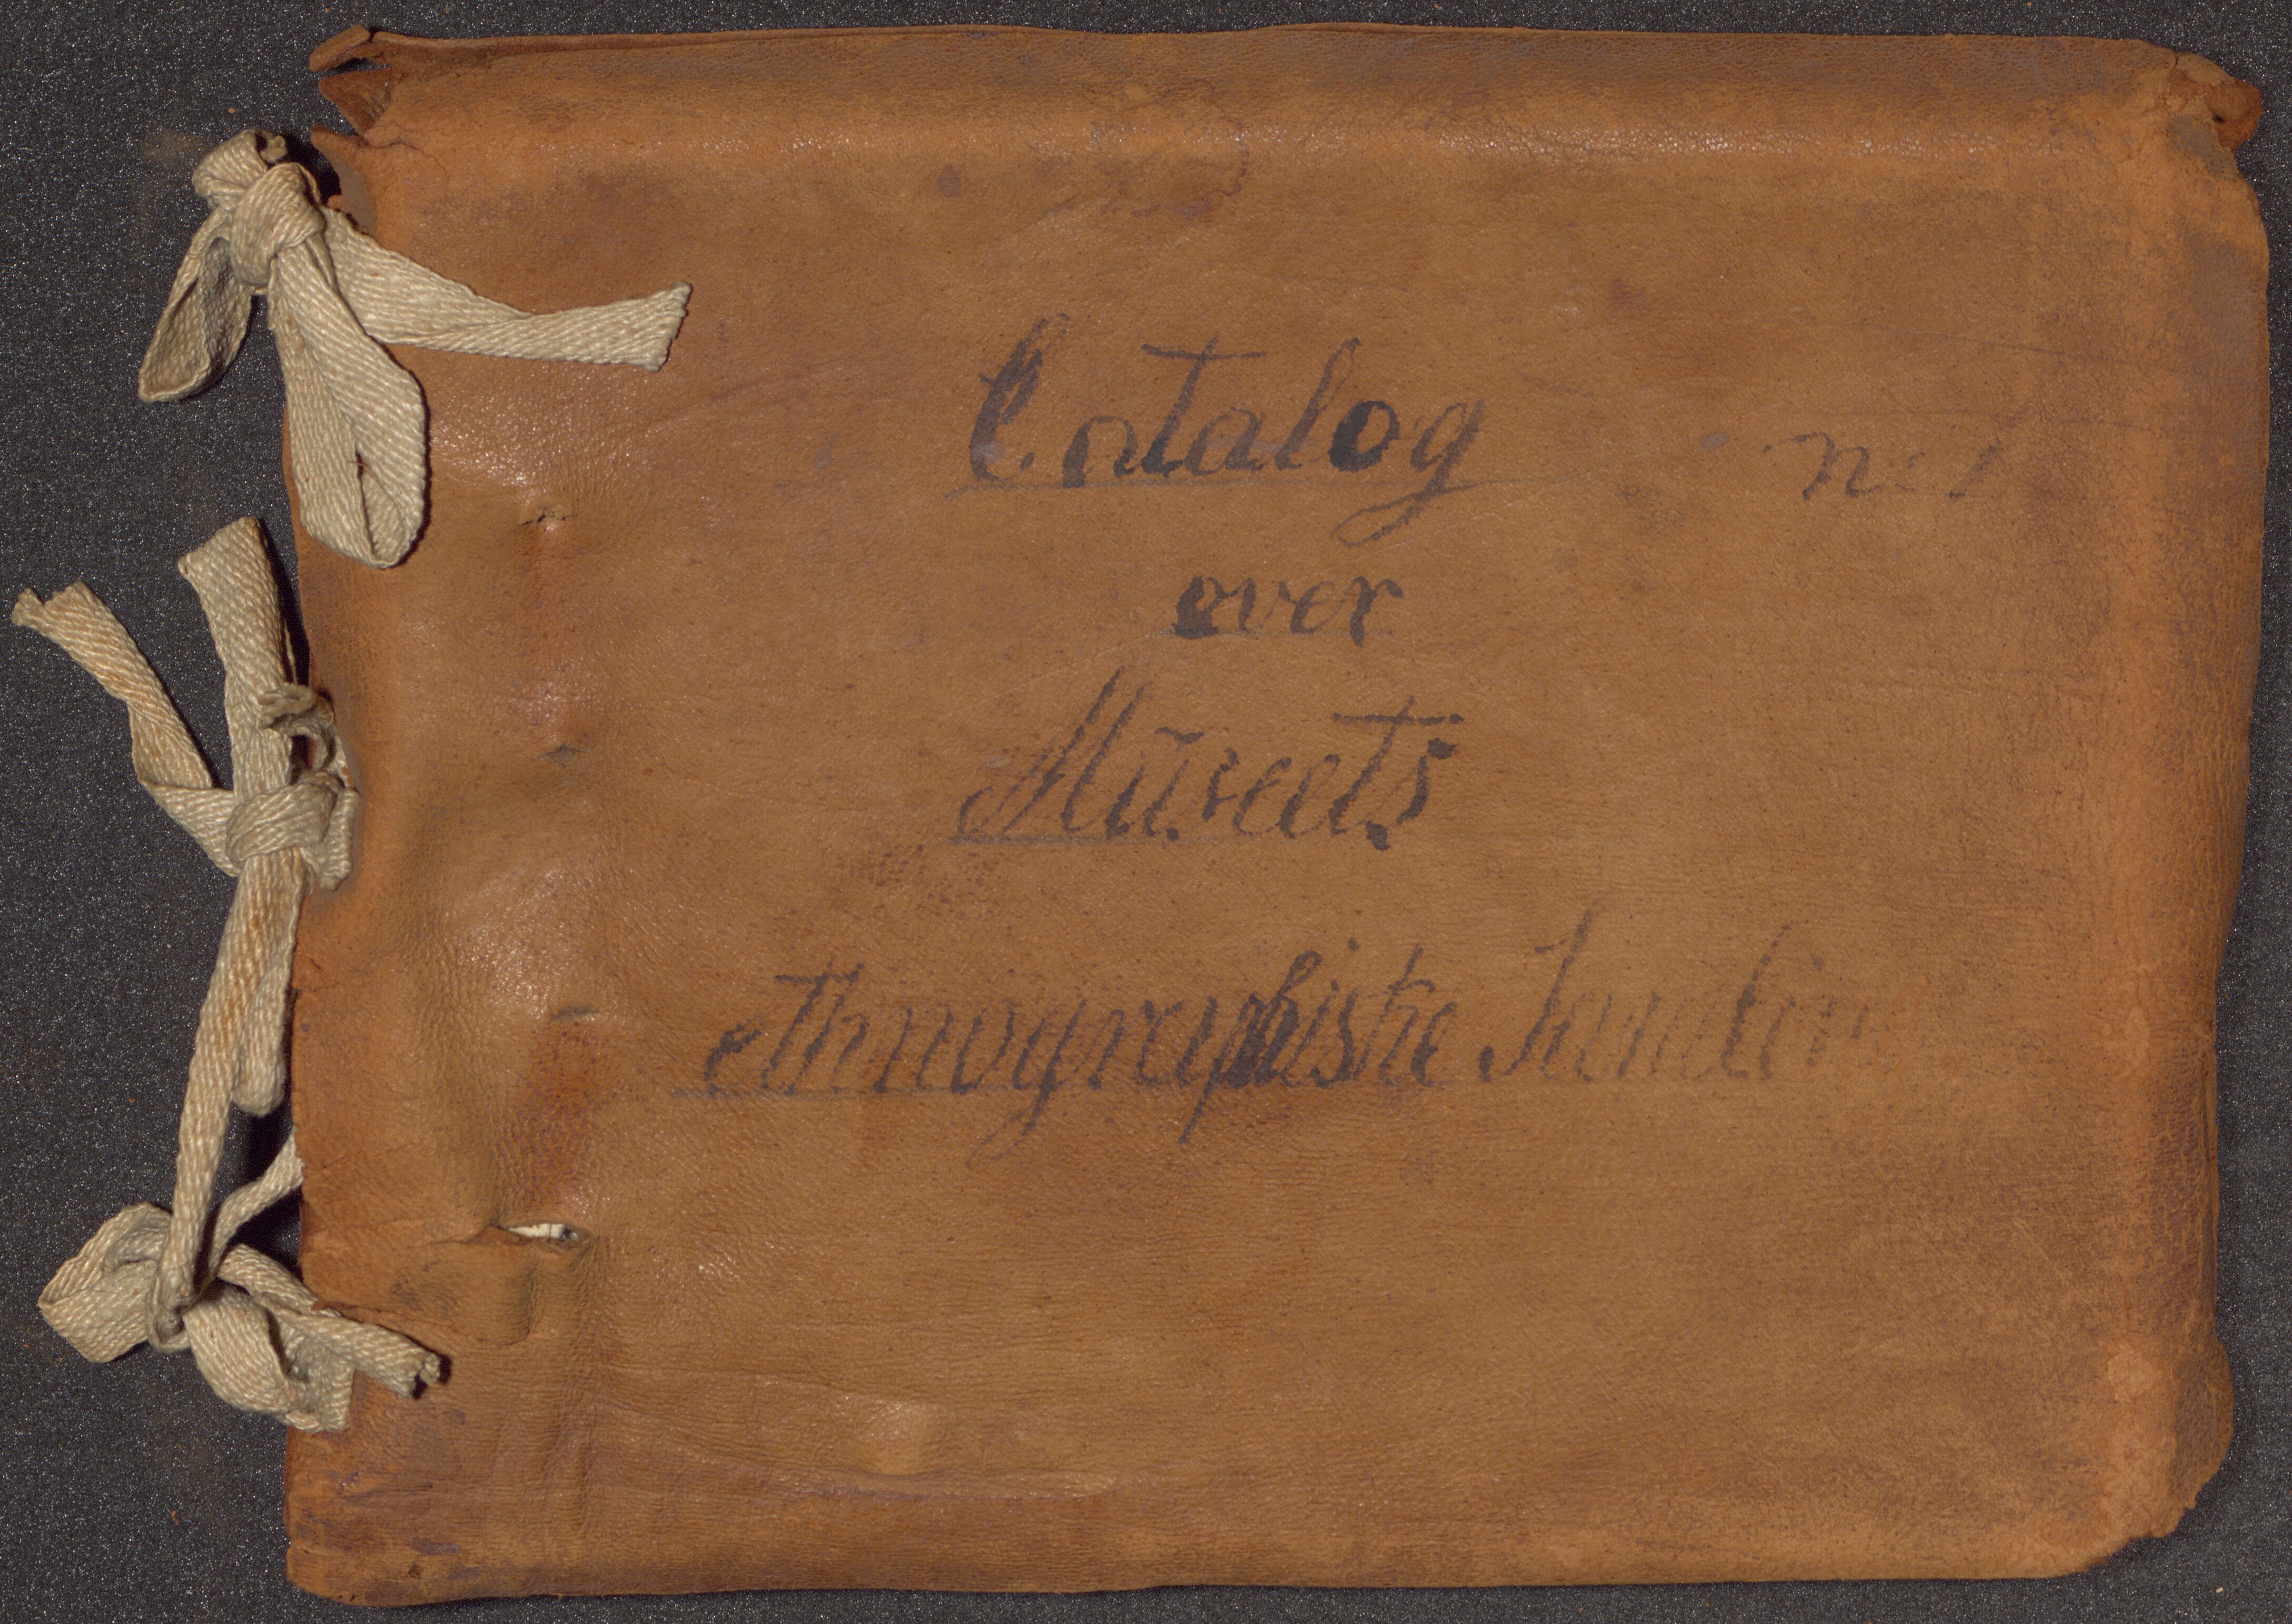 Catalog n: 1
over
Museets
ethnographiske Samlin